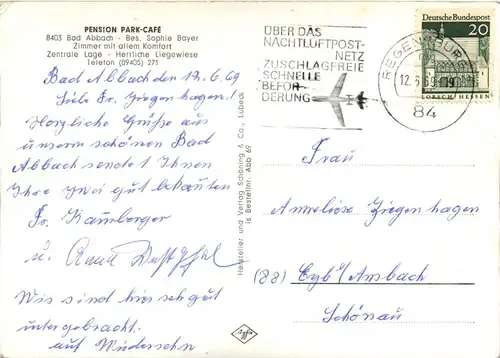 PENSION PARK-CAFÉ
8403 Bad Abbach · Bes. Sophie Bayer
Zimmer mit allem Komfort
Zentrale Lage · Herrliche Liegewiese
Telefon (09405) 271
Bad Abbach den 12.6.69
Liebe Fr. Ziegenhagen!
Herzliche Grüße aus
unserm schönen Bad
Abbach sendet Ihnen
Ihre zwei gut bekannten
Fr. Kamberger
u. Anna
Wir sind hier sehr gut
untergebracht.
auf Wiedersehn
Hersteller und Verlag Schöning & Co., Lübeck
Bestellnr. Abb 69
Agfa
ÜBER DAS
NACHTLUFTPOST-
NETZ
ZUSCHLAGFREIE
SCHNELLE
BEFÖR-
DERUNG
REGENSBURG
12.6.69-19
84
Deutsche Bundespost
20
LORSCH/HESSEN
Frau
Anneliese Ziegenhagen
(88) Eyb b/ Ansbach
Schönau